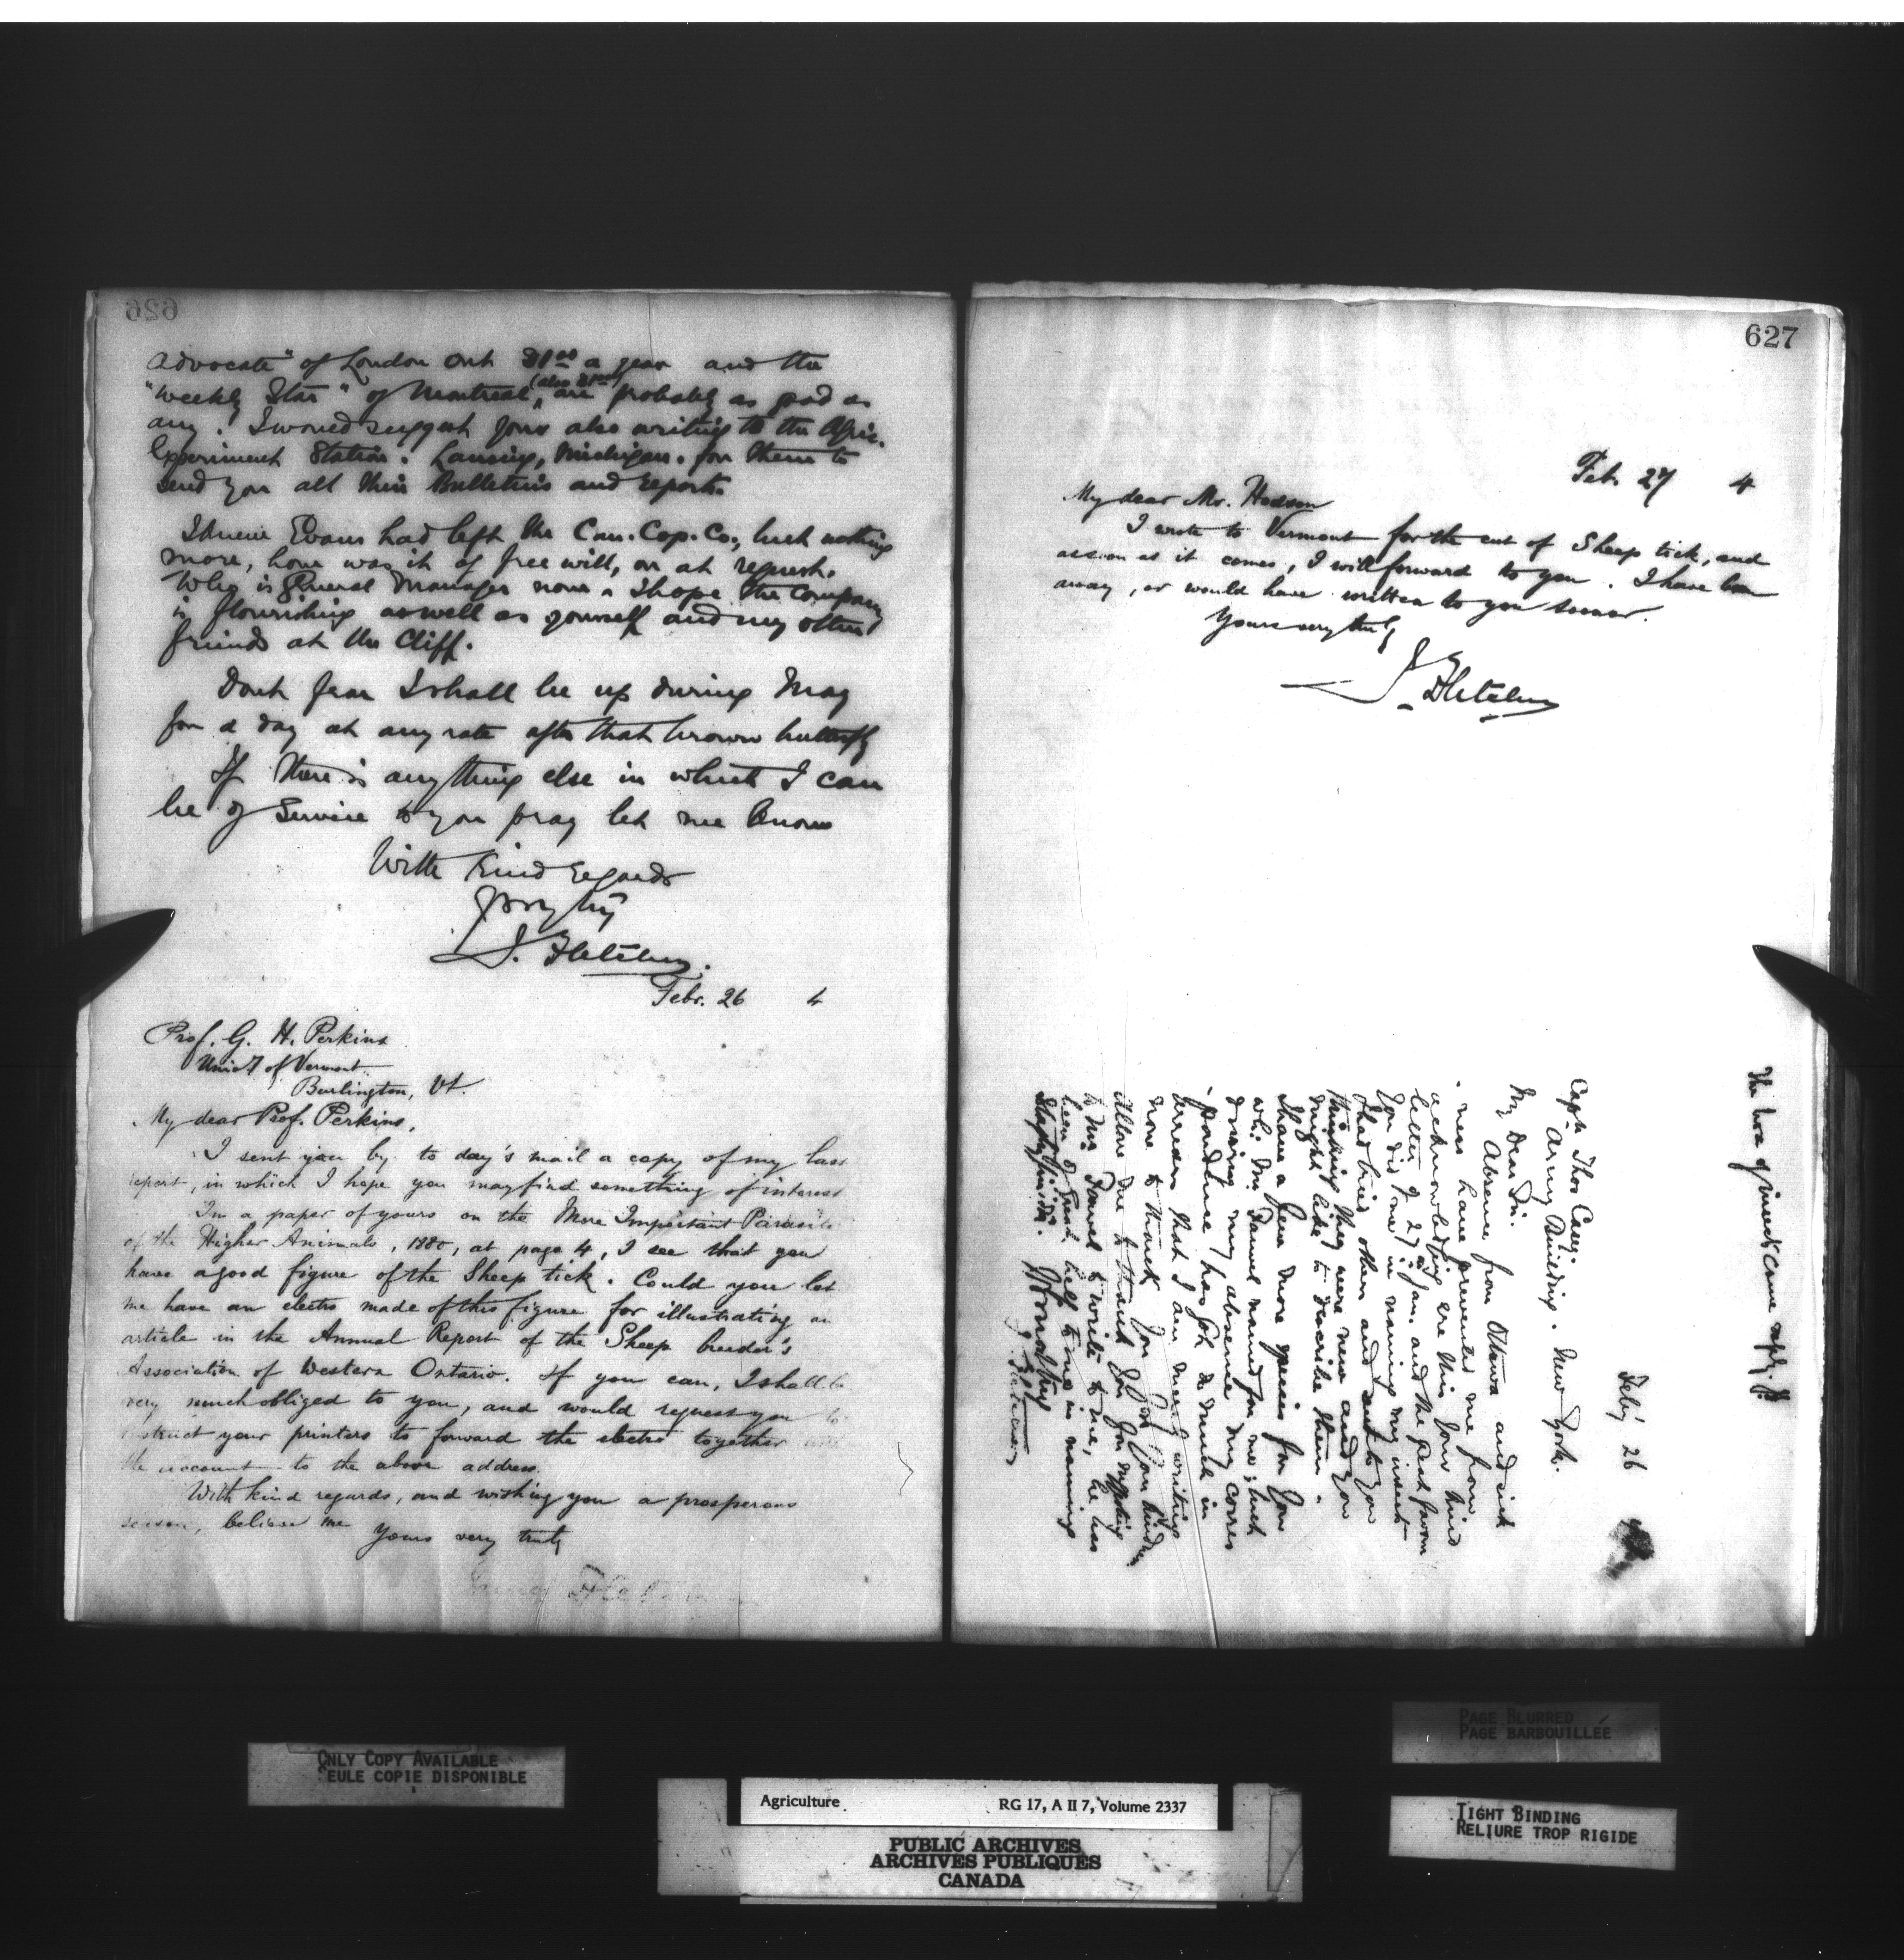 626
Advocate" of London Ont $1.00 a year and the
"Weekly Star" of Montreal, (also $1.00) are probably as good as
any. I would suggest your also writing to the Agric.
Experiment Station. Lansing, Michigan. for them to
send you all their Bulletins and reports.
I knew Evans had left the Can. Cop. Co., but nothing
more, how was it of free will, or at request.
Who is General Manager now. I hope the Company
is flourishing as well as yourself and my other
friends at the Cliff.
Dont fear I shall be up during May
for a day at any rate after that brown butterfly
If there is anything else in which I can
be of Service to you pray let me know
With Kind regards
J. Fletcher.
Febr. 26 4
Prof. G. H. Perkins
Univ. of Vermont
Burlington, Vt.
My dear Prof. Perkins,
I sent you by to day's mail a copy of my last
report, in which I hope you may find something of interest
In a paper of yours on the More Important Parasites
of the Higher Animals, 1880, at page 4, I see that you
have a good figure of the Sheep tick. Could you let
me have an electro made of this figure for illustrating an
article in the Annual Report of the Sheep breeder's
Association of Western Ontario. If you can, I shall be
very much obliged to you, and would request you to
instruct your printers to forward the electro together with
the account to the above address.
With kind regards, and wishing you a prosperous
season, believe me
Yours very truly
James Fletcher
627
Feb. 27 4
My dear Mr. Hodson
I wrote to Vermont for the cut of Sheep tick, and
as soon as it comes, I will forward to you. I have been
away, or would have written to you sooner.
Yours very truly
J. Fletcher
The box of insects came safely.
Feby 26
Capt. Thos Casey.
Army Building. New York.
My Dear Sir.
Absence from Ottawa and sick
ness have prevented me from
acknowledging ere this your kind
letter of 27 Jan. and the great favour
you did me in naming my insects
I had tried others and sent to you
thinking they were new and you
might like to describe them.
I have a few more species for you
which Mr named for me; but
owing to my absence my corres
pondence has got so much in
arrears that I am merely writing
now to thank you for your kindness
Allow me to thank you for your suggesting
to Mr to write to me, he has
been of great help to me in naming
J. Fletcher
ONLY COPY AVAILABLE
SEULE COPIE DISPONIBLE
Agriculture RG 17, A II 7, Volume 2337
PUBLIC ARCHIVES
ARCHIVES PUBLIQUES
CANADA
PAGE BLURRED
PAGE BARBOUILLÉE
TIGHT BINDING
RELIURE TROP RIGIDE